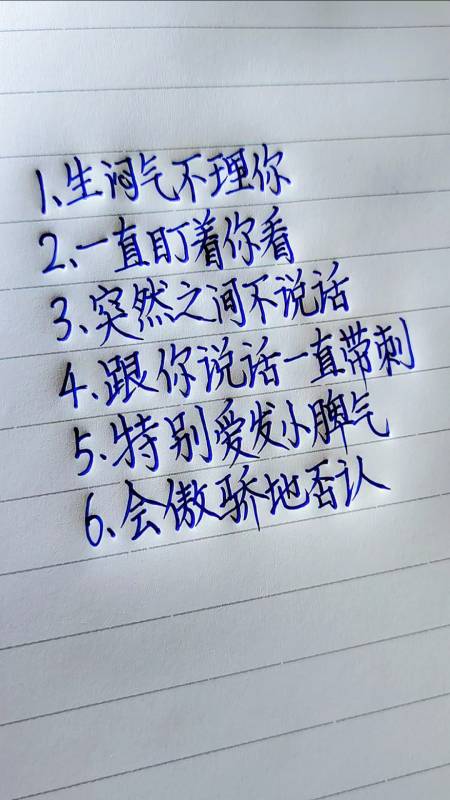 1、生闷气不理你
2、一直盯着你看
3、突然之间不说话
4、跟你说话一直带刺
5、特别爱发小脾气
6、会傲骄地否认